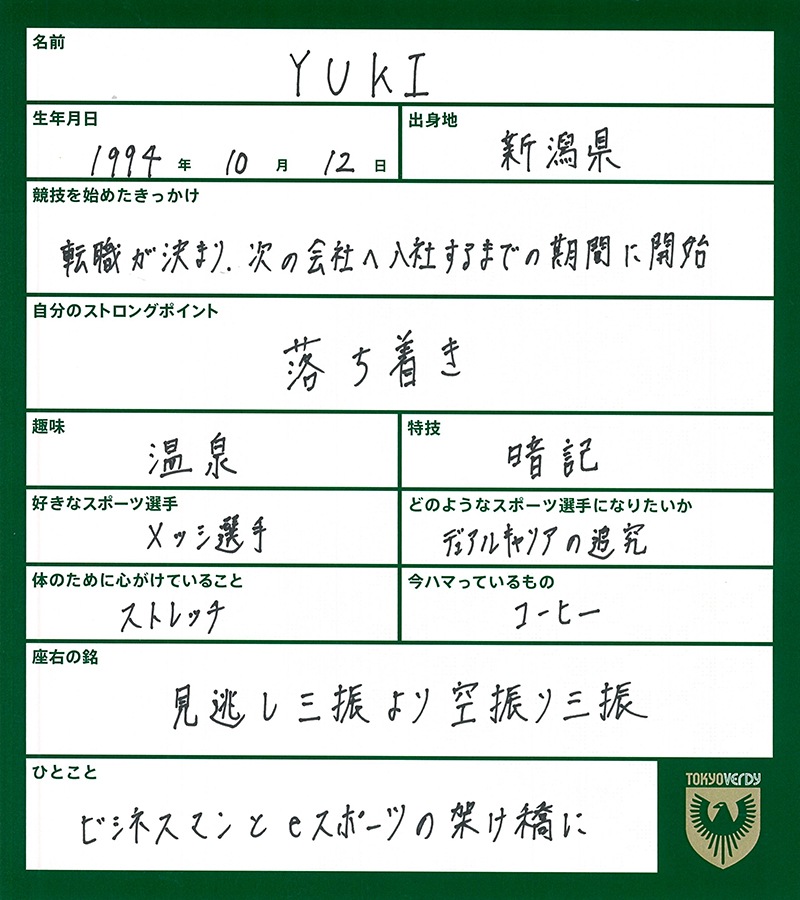 名前
YUKI
生年月日
1994年10月12日
出身地
新潟県
競技を始めたきっかけ
転職が決まり、次の会社へ入社するまでの期間に開始
自分のストロングポイント
落ち着き
趣味
温泉
特技
暗記
好きなスポーツ選手
メッシ選手
どのようなスポーツ選手になりたいか
デュアルキャリアの追究
体のために心がけていること
ストレッチ
今ハマっているもの
コーヒー
座右の銘
見逃し三振より空振り三振
ひとこと
ビジネスマンとeスポーツの架け橋に
TOKYO VERDY